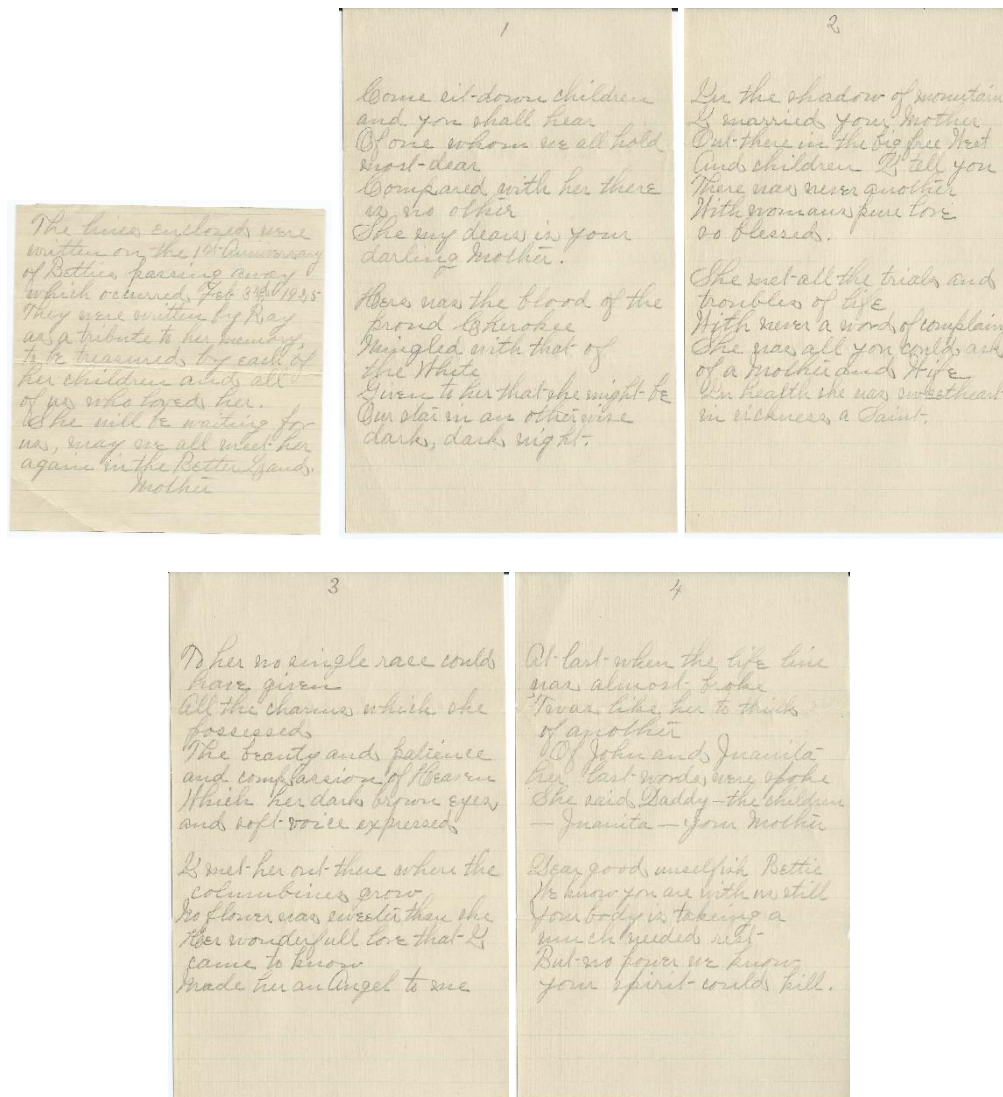 The lines enclosed were
written on the 1st Anniversary
of Betties passing away
which occurred Feb 3rd 1925
They were written by Ray
as a tribute to her memory,
to be treasured by each of
her children and all
of us who loved her.
She will be waiting for
us, may we all meet her
again in the Better Land.
Mother
1
Come sit down children
and you shall hear
Of one whom we all hold
most dear
Compared with her there
is no other
She my dears is your
darling Mother.
Hers was the blood of the
proud Cherokee
Mingled with that of
the White
Given to her that she might be
Our star in an otherwise
dark, dark night.
2
In the shadow of mountain
I married your Mother
Out there in the big free West
And children I tell you
There was never another
With womans pure love
so blessed.
She met all the trials and
troubles of life
With never a word of complain
She was all you could ask
of a Mother and Wife
In health she was sweetheart
in sickness a Saint.
3
To her no single race could
have given
All the charms which she
possessed
The beauty and patience
and compassion of Heaven
Which her dark brown eyes
and soft voice expressed
I met her out there where the
columbines grow
No flower was sweeter than she
Her wonderfull love that I
came to know
Made her an Angel to me
4
At last when the life line
was almost broke
'Twas like her to think
of another
Of John and Juanita
her last words were spoke
She said Daddy – the children
– Juanita – your Mother
Dear good unselfish Bettie
We know you are with us still
Your body is taking a
much needed rest
But no power we know
your spirit could kill.